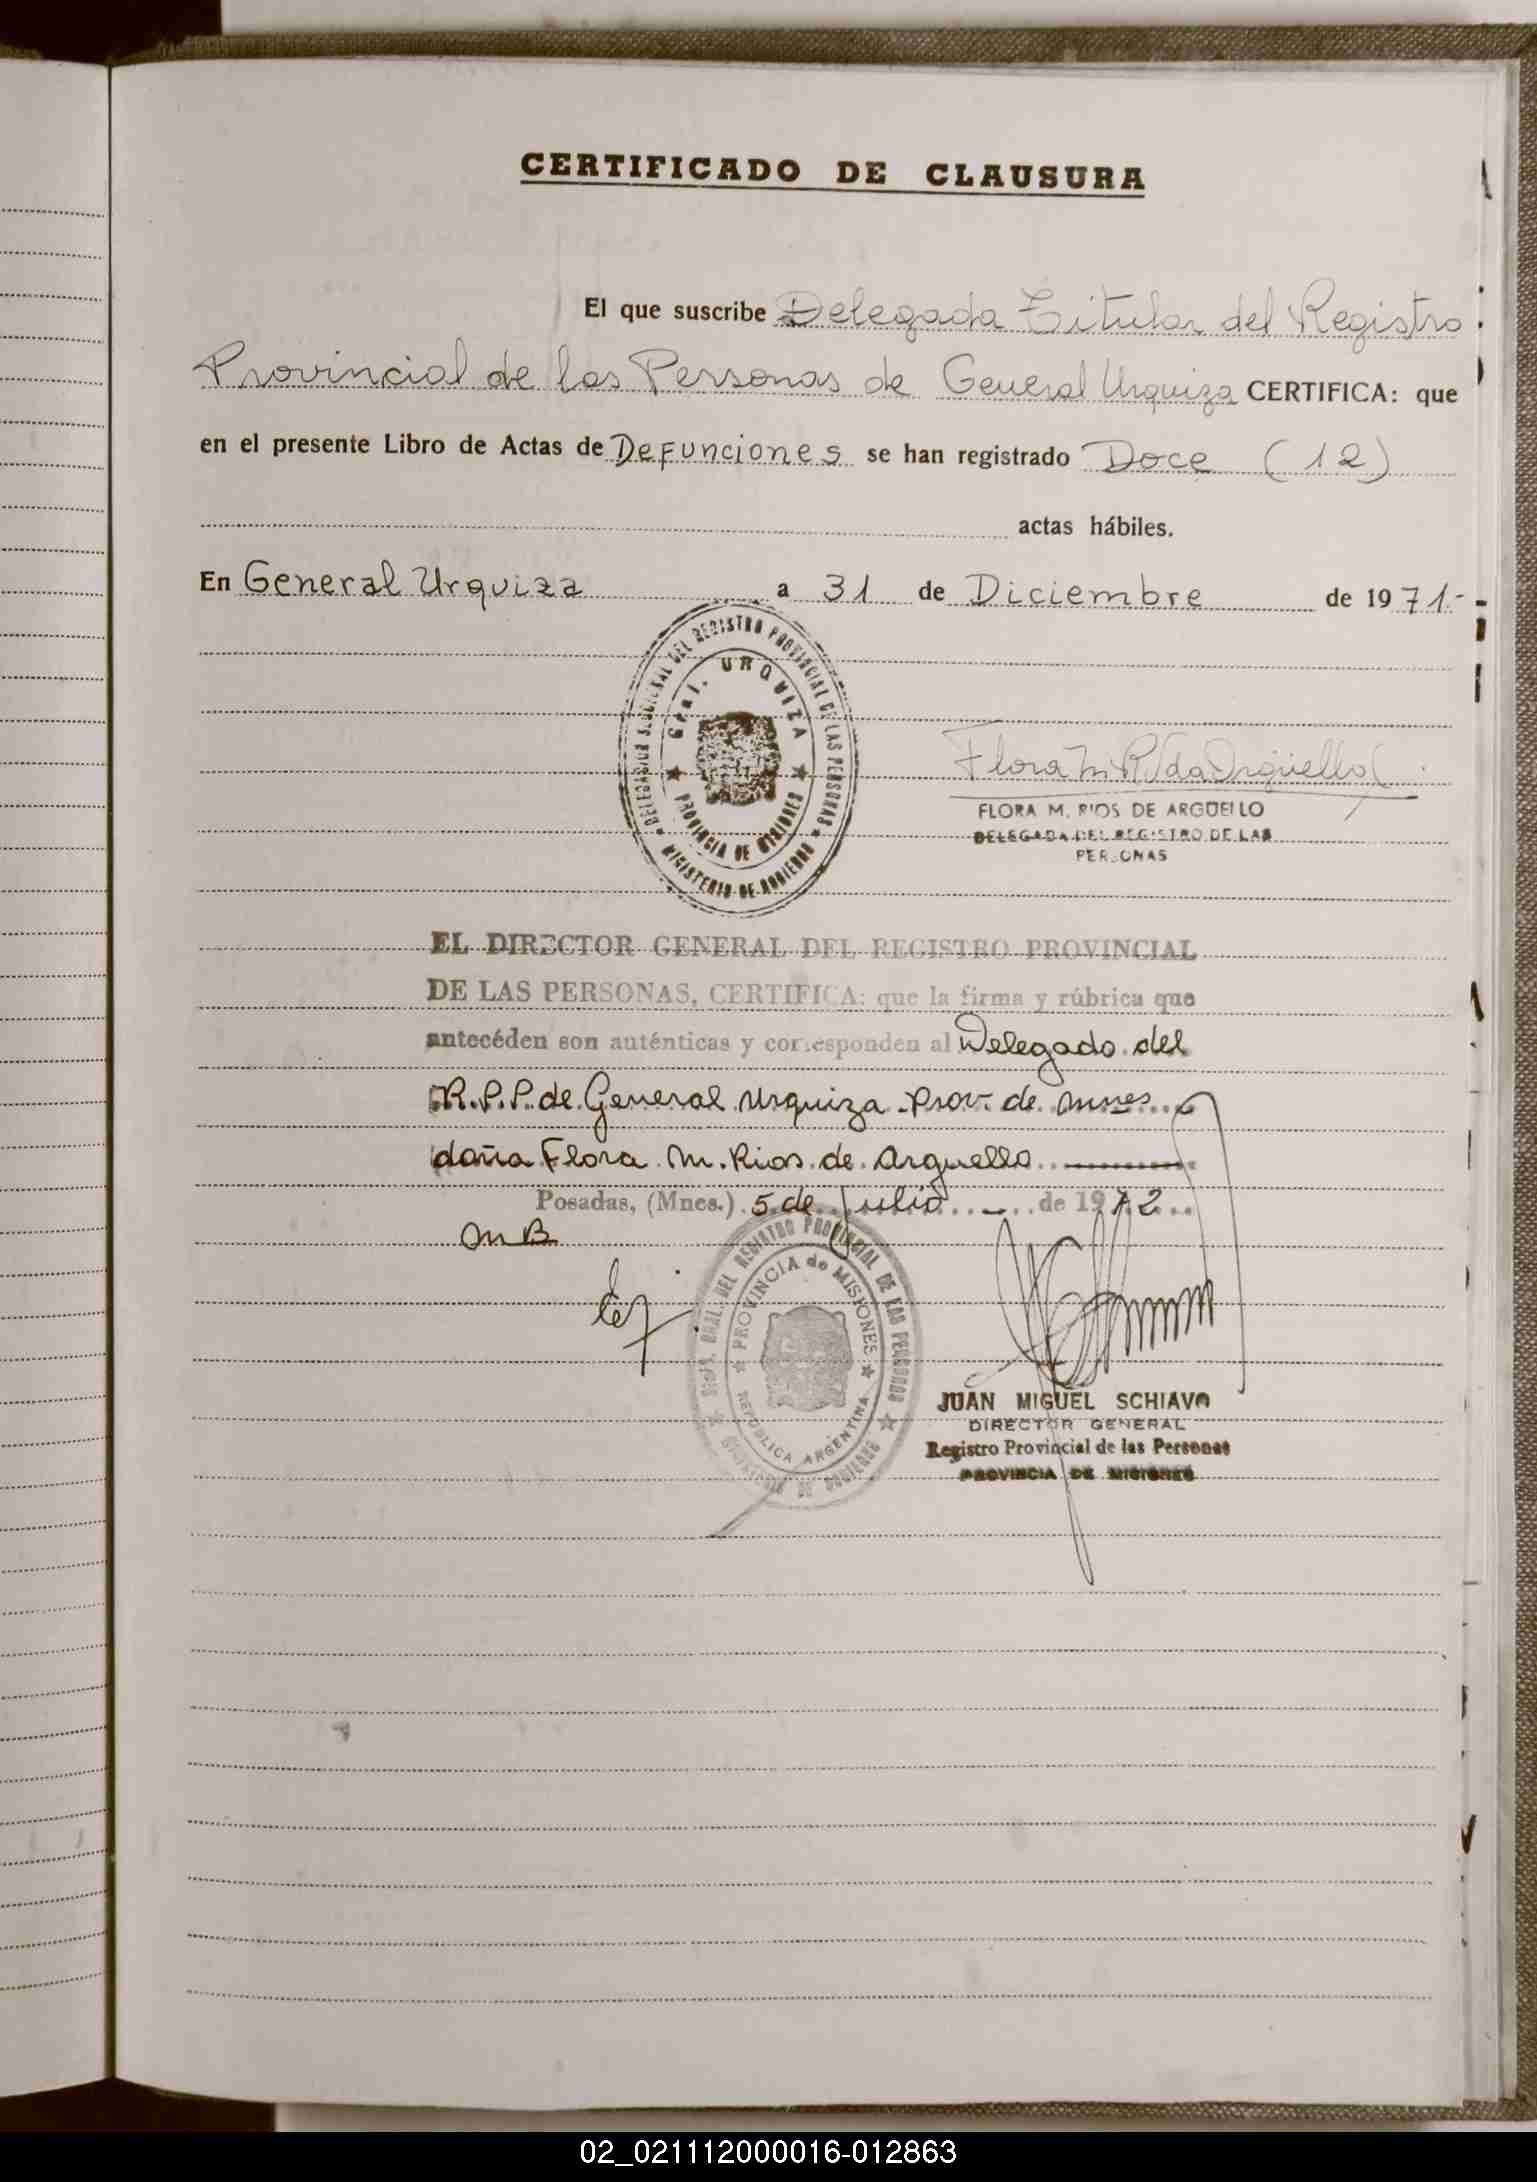 CERTIFICADO DE CLAUSURA
El que suscribe Delegada Titular del Registro
Provincial de las Personas de General Urquiza CERTIFICA: que
en el presente Libro de Actas de Defunciones se han registrado Doce (12)
actas hábiles.
En General Urquiza a 31 de Diciembre de 1971.-
DELEGACION SECCIONAL DEL REGISTRO PROVINCIAL DE LAS PERSONAS
Gral. URQUIZA
PROVINCIA DE MISIONES
MINISTERIO DE GOBIERNO
Flora M R de Argüello
FLORA M. RIOS DE ARGÜELLO
DELEGADA DEL REGISTRO DE LAS
PERSONAS
EL DIRECTOR GENERAL DEL REGISTRO PROVINCIAL
DE LAS PERSONAS, CERTIFICA: que la firma y rúbrica que
antecéden son auténticas y corresponden al Delegado del
R.P.P. de General Urquiza - Prov. de Mnes
doña Flora M. Rios de Arguello
Posadas, (Mnes.) 5 de Julio - de 1972
MB
DIR. GRAL. DEL REGISTRO PROVINCIAL DE LAS PERSONAS
PROVINCIA de MISIONES
REPUBLICA ARGENTINA
MINISTERIO DE GOBIERNO
JUAN MIGUEL SCHIAVO
DIRECTOR GENERAL
Registro Provincial de las Personas
PROVINCIA DE MISIONES
02_021112000016-012863